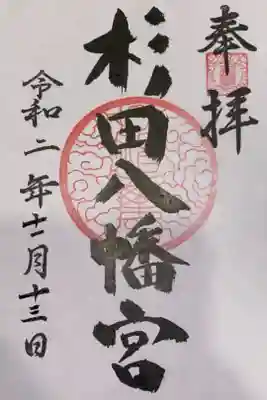 奉拝
杉田八幡宮
令和二年十二月十三日